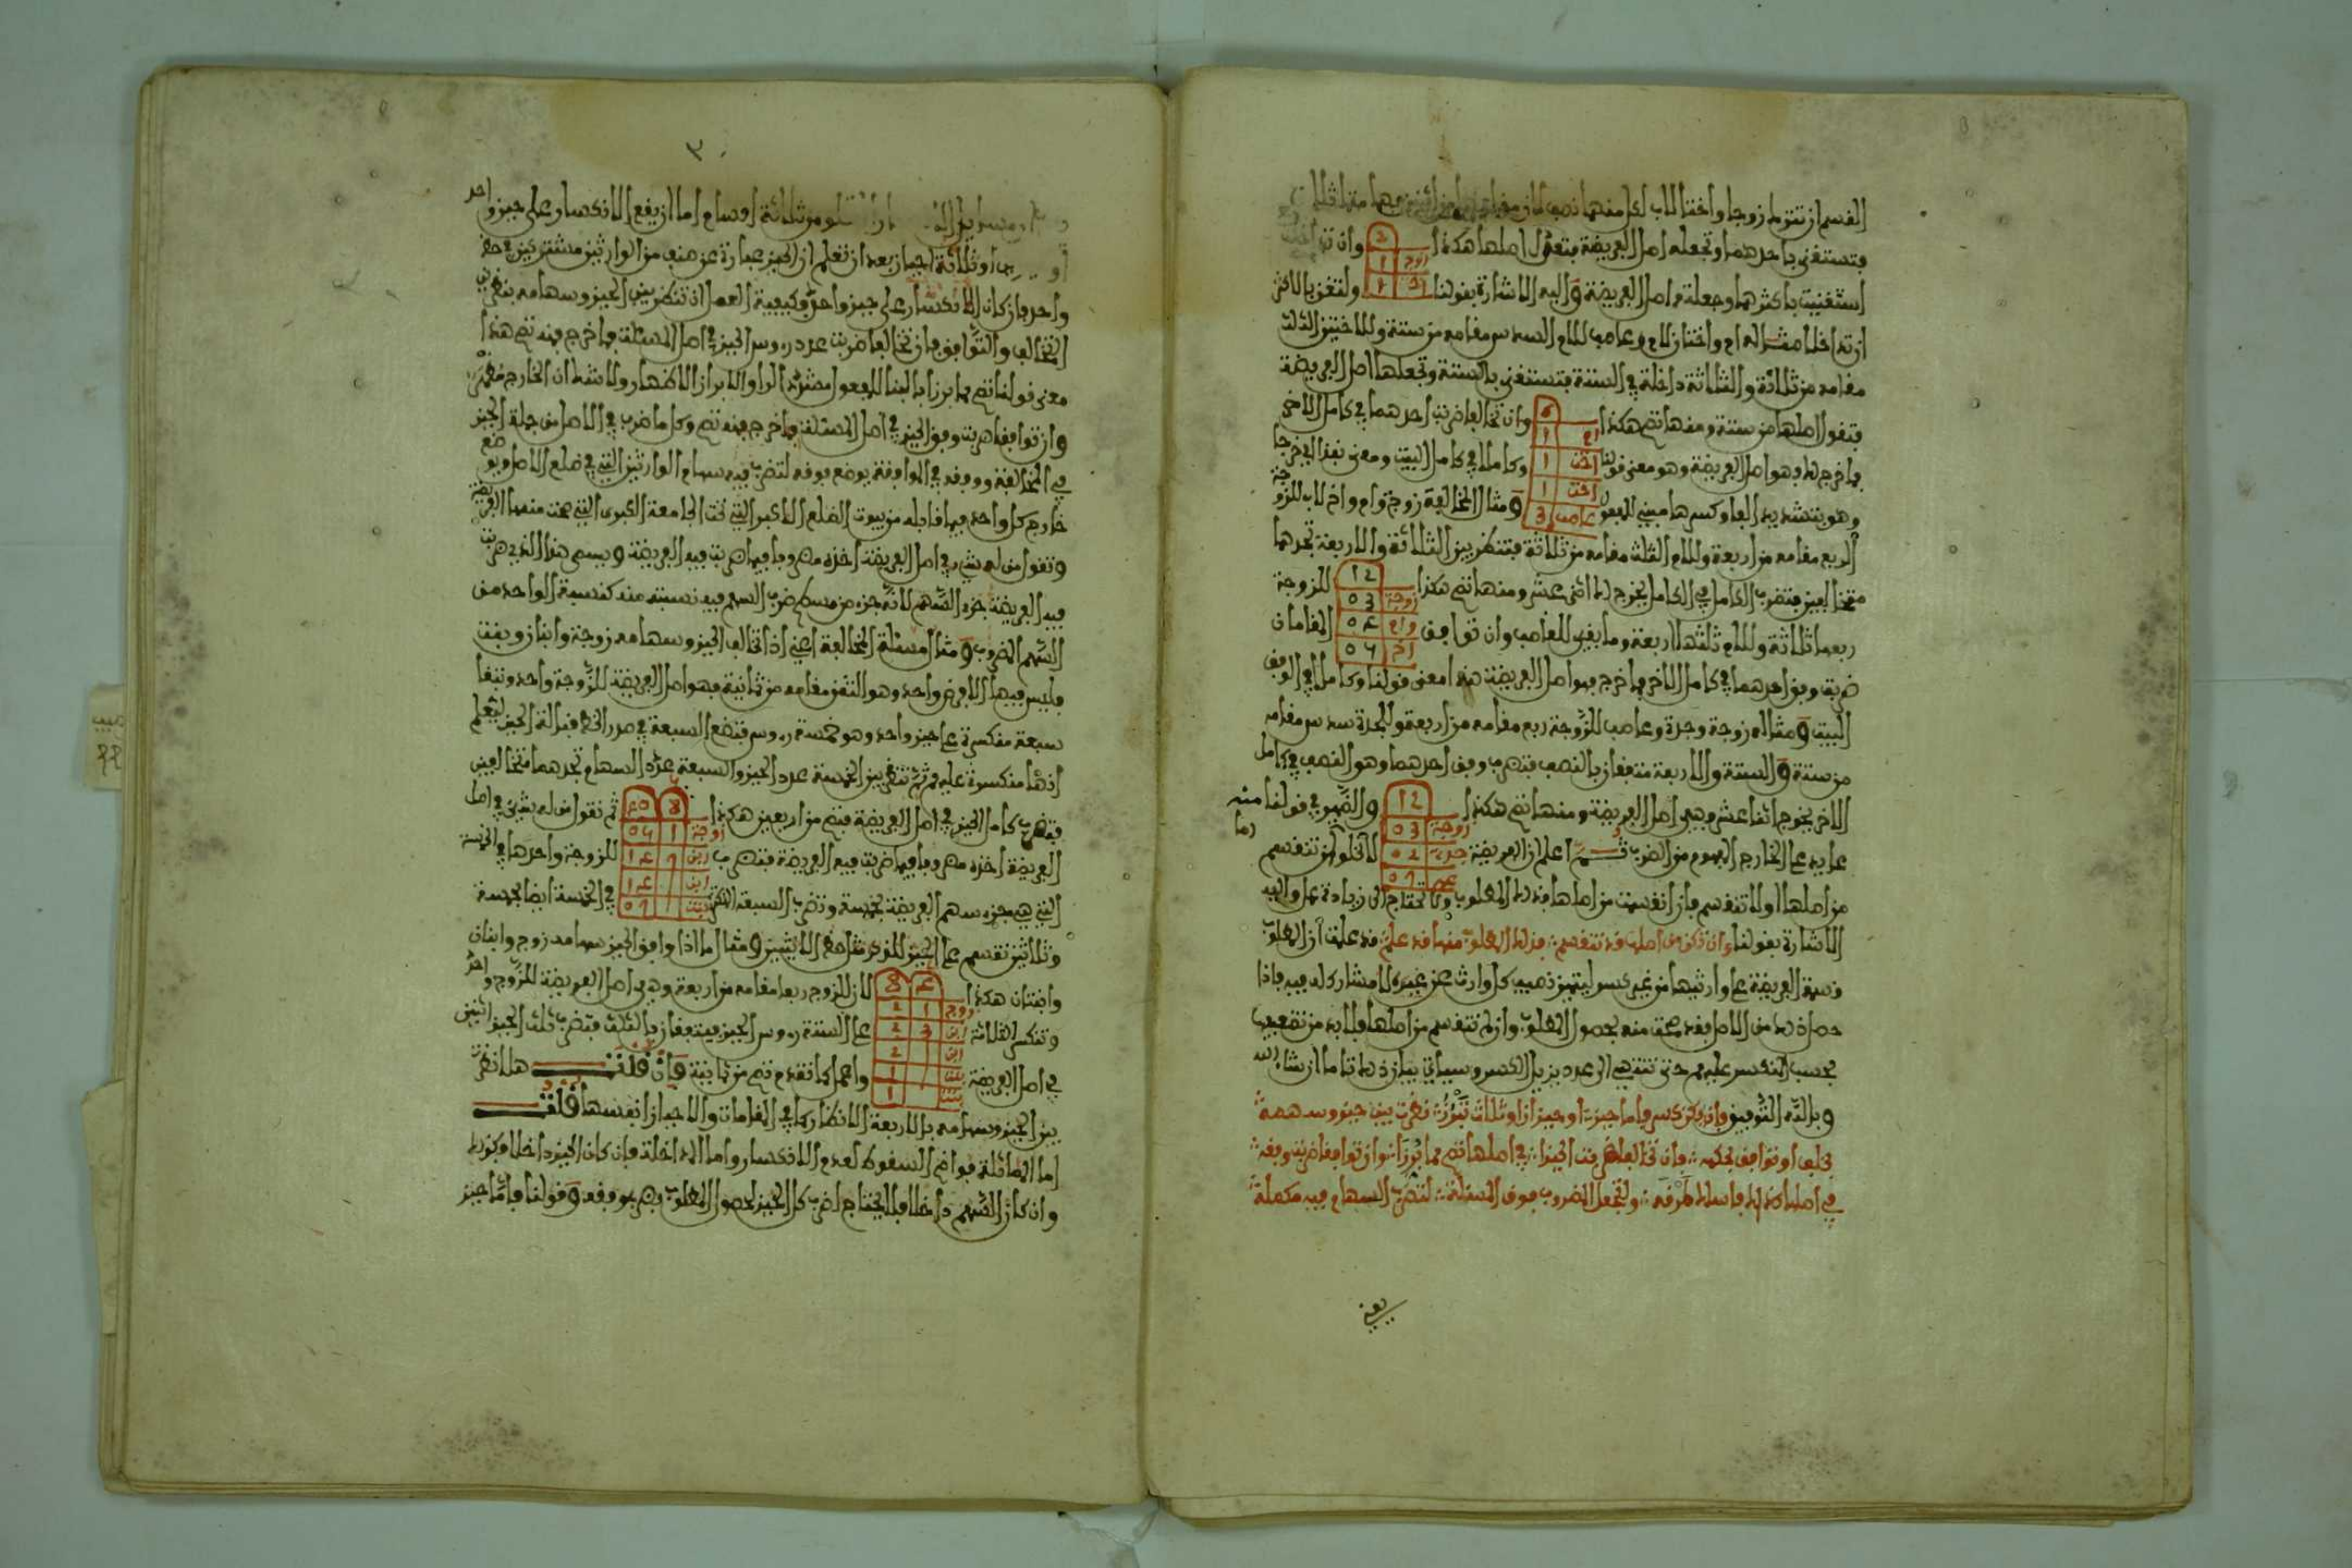 القسم ان تترك زوجا واختا للاب لكل منهما نصف لان مقام
فتستغني باحدهما وتجعله اصل الفريضة فتعول اصلها هكذا وان
2
زوج 1
اخت 1
استغنيت باكثرهما وجعلته اصل الفريضة واليه الاشارة بقولنا ولتغن بالاكثر
ان تداخلا مثاله ام واختان لام وعاصب للام السدس مقامه من ستة وللاختين الثلث
مقامه من ثلاثة والثلاثة داخلة في الستة فتستغني بالستة وتجعلها اصل الفريضة
فتقول اصلها من ستة ومنها تصح هكذا وان تخالفا ضربت احدهما في كامل الاخر
6
ام 1
اخت 1
اخت 1
عاصب 3
فما خرج لك فهو اصل الفريضة وهو معنى قولنا وكاملا في كامل البيت ومعنى
وهو بتشديد الفا وكسرها مبني للمفعول ومثال المخالفة زوجة وام واخ لاب للزوجة
الربع مقامه من اربعة وللام الثلث مقامه من ثلاثة فتنظر بين الثلاثة والاربعة تجدهما
متخالفين فتضرب الكامل في الكامل يخرج لك اثنى عشر ومنها تصح هكذا للزوجة
12
زوجة 03
وام 04
اخ 05
ربعها ثلاثة وللام ثلثها اربعة وما بقي للعاصب وان توافق المقامان
ضربت وفق احدهما في كامل الاخر فما خرج فهو اصل الفريضة هذا معنى قولنا وكاملا في الوفق
البيت ومثاله زوجة وجدة وعاصب للزوجة ربع مقامه من اربعة وللجدة سدس مقامه
من ستة والستة والاربعة متفقان بالنصف فتضرب وفق احدهما وهو النصف في كامل
الاخر يخرج اثنا عشر وهي اصل الفريضة ومنها تصح هكذا والضمير في قولنا منه
12
زوجة 03
جدة 02
عم 07
عايد على الخارج المفهوم من الضرب اعلم ان الفريضة لا تخلو ان تنقسم
من اصلها او لا تنقسم فان انقسمت من اصلها فذلك المطلوب ولا تحتاج الى زيادة عمل واليه
الاشارة بقولنا وان تكن من اصلها قد تنقسم فذلك المطلوب منها قد علم قد علمت ان المطلوب
قسمة الفريضة على وارثيها من غير كسر ليتميز نصيب كل وارث عن غيره لا مشارك له فيه فاذا
حصل ذلك من الاصل فقد صحت منه بحصول المطلوب وان لم تنقسم من اصلها فلا بد من تضعيف
بحسب المنكسر عليهم حتى تنتهي الى عدد يزيل الكسر وسياتي بيان ذلك تاما ان شا الله
وبالله التوفيق وان يكن كسر فاما حيز او حيزان او ثلاث تبرز نظرت بين حيز وسهمه
بخلف او توافق بحكمه فان تخالفا ضربت الحيزا في اصلها تصح مما برزا وان توافقا ضربت وفقه
في اصلها كذلك فاسلك طرقه ولتجعل المضروب فوق المسئلة لتضرب السهام فيه مكملة
يعني
٣
ثلاثة اقسام اما ان يقع الانكسار على حيز واحد
او ثلاثة احياز بعد ان تعلم ان الحيز عبارة عن صنف من الوارثين مشتركين في حظ
واحد فان كان الانكسار على حيز واحد وكيفية العمل ان تنظر بين الحيز وسهامه بنظرين
التخالف والتوافق فان تخالفا ضربت عدد روس الحيز في اصل المسئلة فما خرج فمنه تصح هذا
معنى قولنا تصح مما برزا بالبنا للمفعول مشدد الرا والابراز الاظهار ولا شك ان الخارج
وان توافقا ضربت وفق الحيز في اصل المسئلة فما خرج فمنه تصح وكل ما ضرب في الاصل من جملة الحيز
في المخالفة ووفقه في الموافقة يوضع فوقه لتضرب فيه سهام الوارثين التي في ضلع الاصل
خارج كل واحد فيما قابله من بيوت الضلع الاكبر التي تحت الجامعة الكبرى التي صحت منها الفريضة
وتقول من له شيء في اصل الفريضة اخذه مضروبا فيما ضربت فيه الفريضة ويسمى هذا الذي ضربت
فيه الفريضة جزء السهم لانه جزء من مسطح ضرب السهم فيه نسبته منه كنسبة الواحد من
السهم المضروب ومثال مسئلة المخالفة اعني اذا تخالف الحيز وسهامه زوجة وابنان وبنت
فليس فيها الا فرض واحد وهو الثمن مقامه من ثمانية فهو اصل الفريضة للزوجة واحد وتبقى
سبعة منكسرة على حيز واحد وهو خمسة روس فتضع السبعة في صدر الخط قبالة الحيز ليعلم
انها منكسرة عليهم ثم تنظر بين الخمسة عدد الحيز والسبعة عدد السهام تجدهما متخالفين
فتضرب كامل الحيز في اصل الفريضة فتصح من اربعين هكذا ثم تقول من له شيء في اصل
8 40
زوجة 1 05
ابن 7 14
ابن 14
بنت 07
الفريضة اخذه مضروبا فيما ضربت فيه الفريضة فتضرب للزوجة واحدها في الخمسة
التي هي جزء سهم الفريضة بخمسة وتضرب السبعة في الخمسة ايضا بخمسة
وثلاثين تنقسم على الحيز للذكر مثل حظ الانثيين ومثال ما اذا وافق الحيز سهامه زوج وابنان
وابنتان هكذا لان للزوج ربعا مقامه من اربعة وهي اصل الفريضة للزوج واحد
4 8
زوج 1 2
ابن 3 2
ابن 2
بنت 1
بنت 1
وتنكسر الثلاثة على الستة روس الحيز فيتفقان بالثلث فتضرب ثلث الحيز اثنين
في اصل الفريضة واعمل كما تقدم تصح من ثمانية فان قلت هلا نظرت
بين الحيز وسهامه بالاربعة الانظار كما في المقامات والاحياز انفسها قلت
اما المماثلة فواضح السقوط لعدم الانكسار واما المداخلة فان كان الحيز داخلا فكذلك
وان كان السهم داخلا فلا يحتاج لضرب كل الحيز لحصول المطلوب بضرب وفقه وقولنا فاما حيز